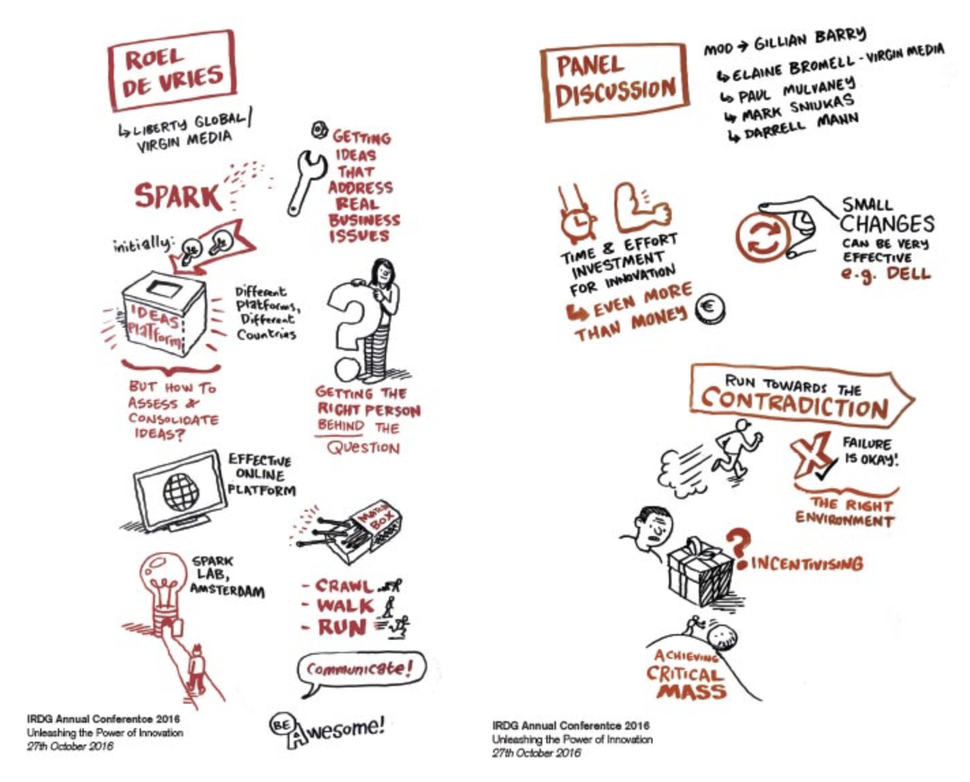 ROEL
DE VRIES
LIBERTY GLOBAL/
VIRGIN MEDIA
SPARK
initially:
IDEAS
Platform
Different
Platforms,
Different
Countries
BUT HOW TO
ASSESS &
CONSOLIDATE
IDEAS?
EFFECTIVE
ONLINE
PLATFORM
SPARK
LAB,
AMSTERDAM
GETTING
IDEAS
THAT
ADDRESS
REAL
BUSINESS
ISSUES
GETTING THE
RIGHT PERSON
BEHIND THE
QUESTION
MATCH
BOX
- CRAWL
- WALK
- RUN
Communicate!
BE
Awesome!
IRDG Annual Conferentce 2016
Unleashing the Power of Innovation
27th October 2016
PANEL
DISCUSSION
MOD → GILLIAN BARRY
ELAINE BROMELL - VIRGIN MEDIA
PAUL MULVANEY
MARK SNIUKAS
DARRELL MANN
TIME & EFFORT
INVESTMENT
FOR INNOVATION
EVEN MORE
THAN MONEY
€
SMALL
CHANGES
CAN BE VERY
EFFECTIVE
e.g. DELL
RUN TOWARDS THE
CONTRADICTION
FAILURE
IS OKAY!
THE RIGHT
ENVIRONMENT
? INCENTIVISING
ACHIEVING
CRITICAL
MASS
IRDG Annual Conferentce 2016
Unleashing the Power of Innovation
27th October 2016